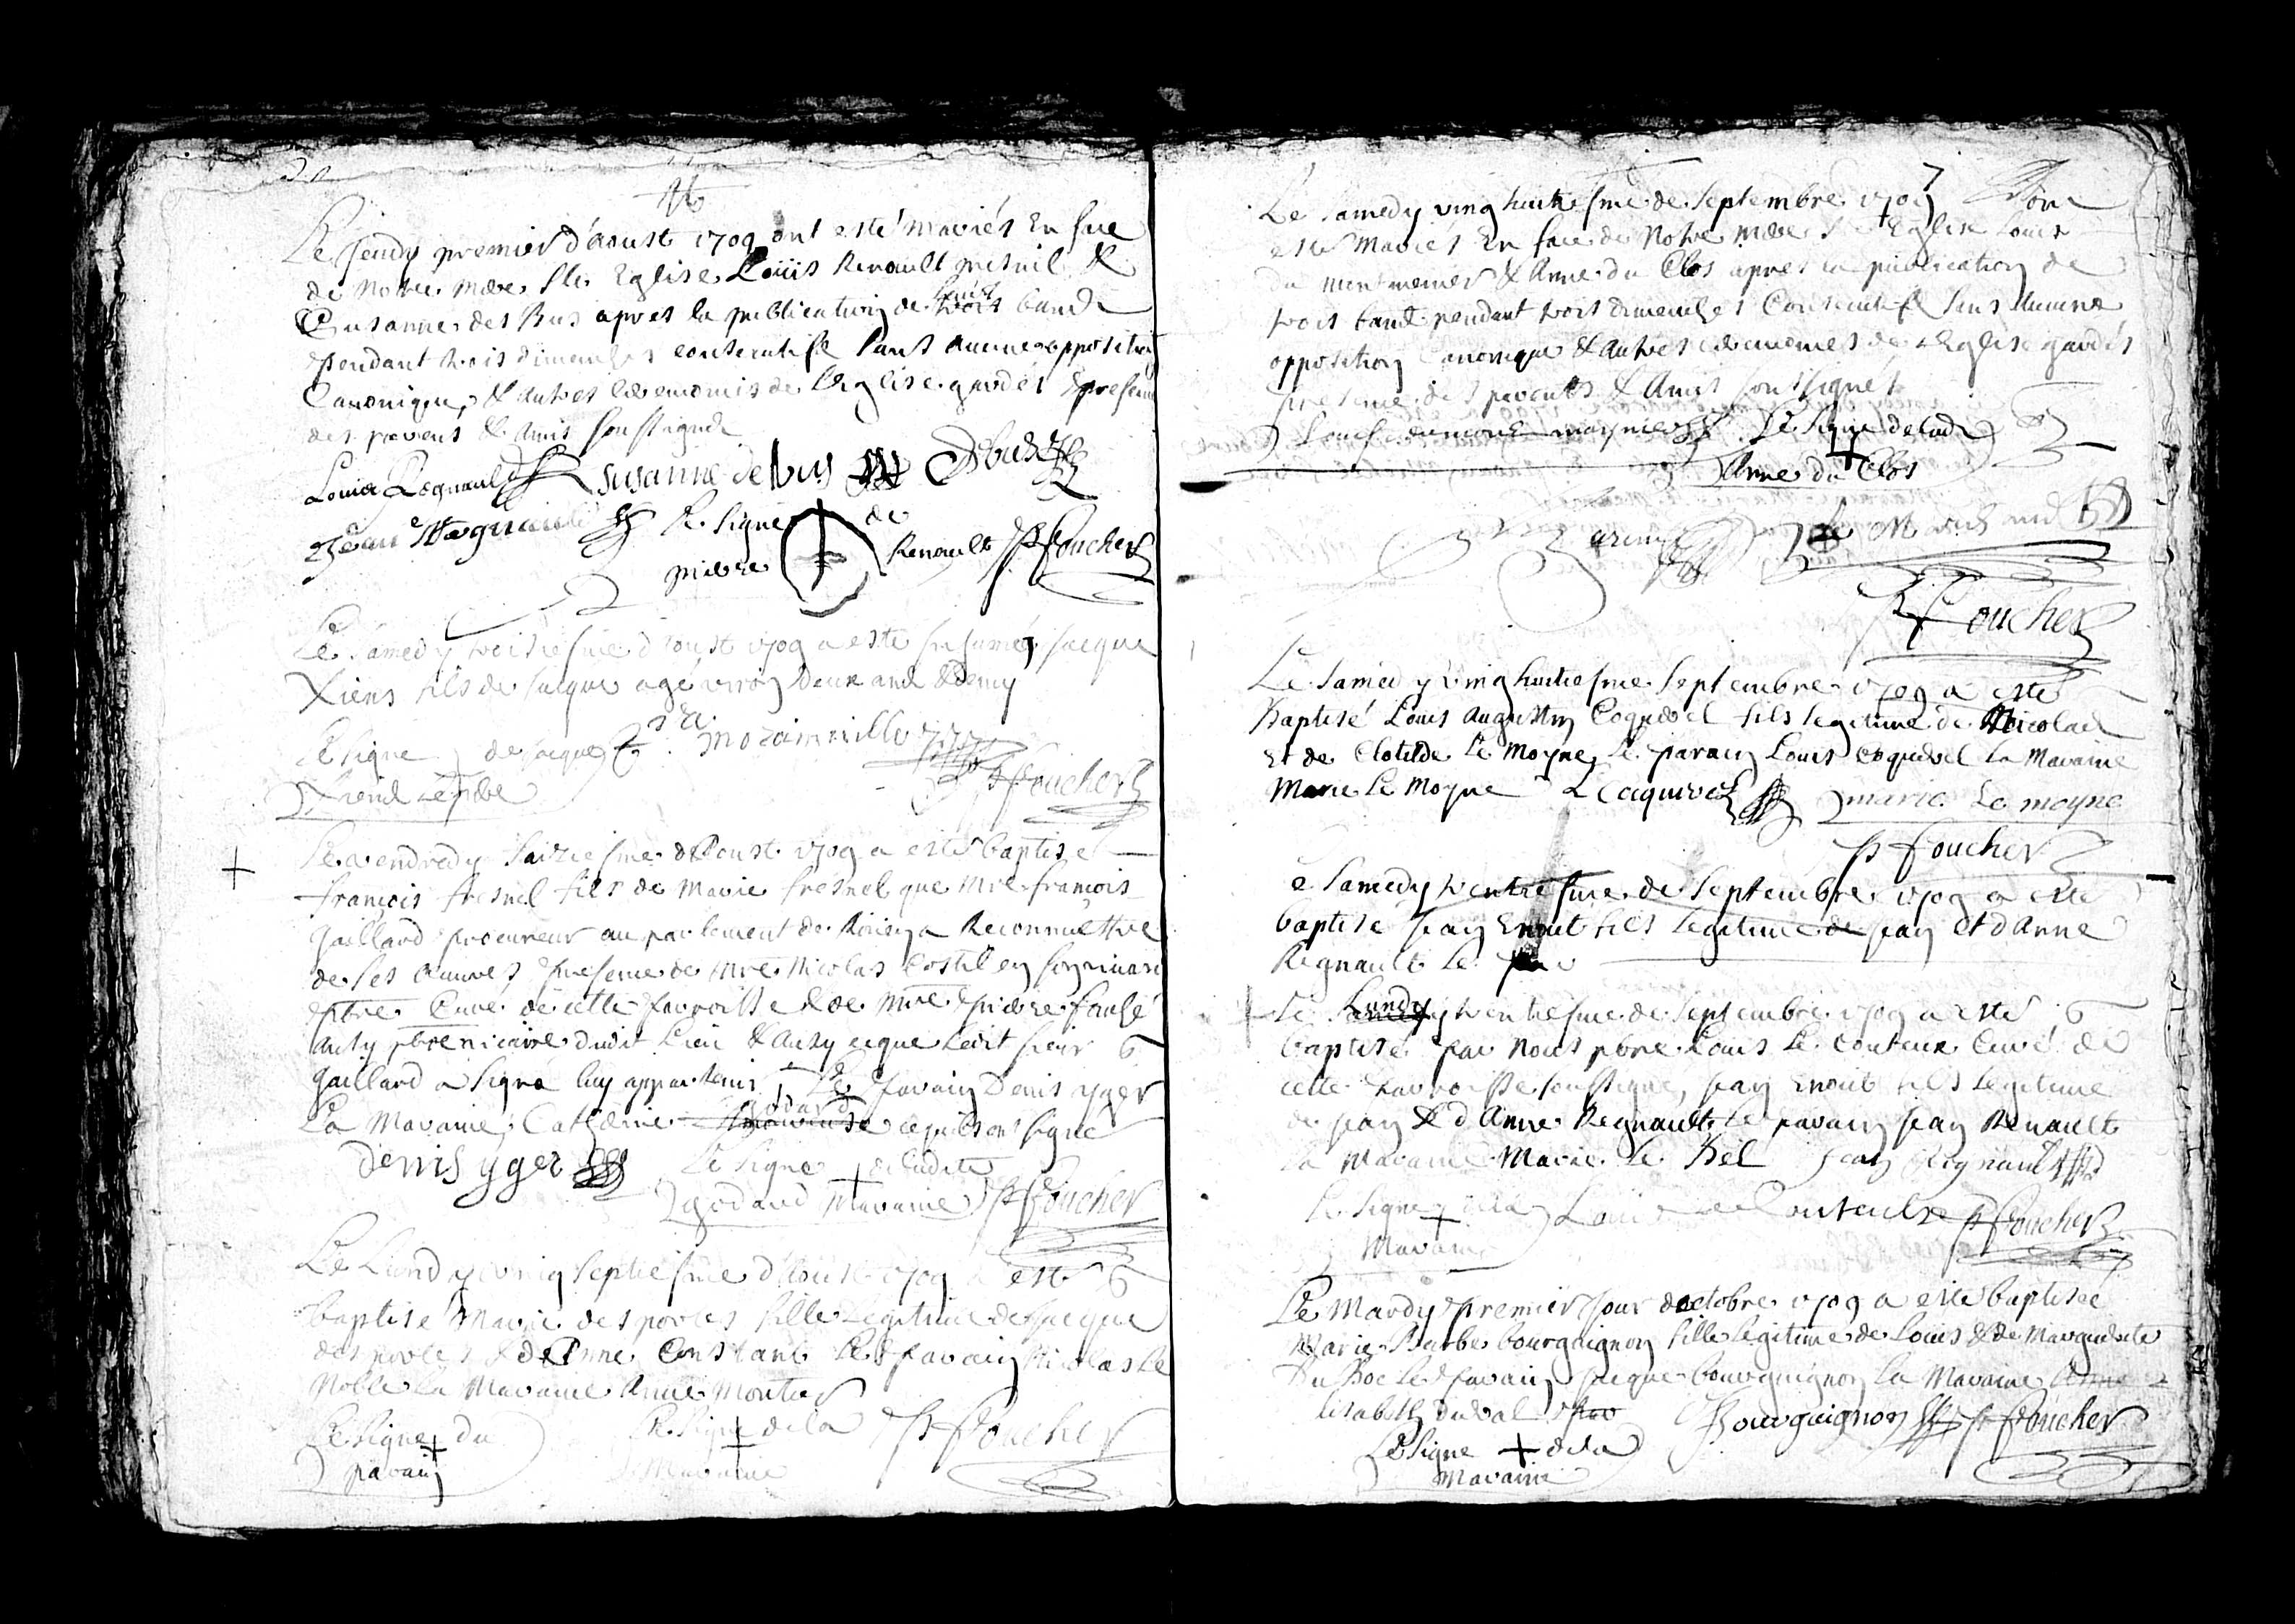 Le Jeudy premier d'Aoust 1709 ont esté mariés En face
de Notre mere Ste Eglise Loüis Renault &
Susanne des Bus apres la publication de trois bans
pendant trois dimanches consecutifs sans aucune opposition
Canonique & autres ceremonies de l'Eglise gardés presence
des parens & amis soussignés
Louis Regnault susanne de bus Debus
Jean Regnault le signe de
pierre Renault P Foucher
Le Samedy troisiesme d'aoust 1709 a esté inhumé Jacque
fils de Jacque agé viron deux ans & demy
le signe de Jacques
le pere P Foucher
Le vendredy saiziesme d'Aoust 1709 a esté baptisé
françois fresnel fils de Marie fresnel que Mre françois
Gaillard procureur au parlement de Roüen a Reconnu estre
de ses œuvres presence de Mre Nicolas Costil
ptre Curé de cette parroisse & de Mre pierre
ausy pbre vicaire dudit Lieu & ausy ce que Ledit sieur
Gaillard a signé luy appartenir Le parain Denis yger
La Maraine Catherine godard ce qu'ils ont signé
denis yger Le signe de ladite
godard Maraine P Foucher
Le Lundy vingt septiesme d'aoust 1709 a esté
baptisé Marie des portes fille Legitime de Jacque
des portes & d'Anne Constant Le parain Nicolas Le
Noble la Maraine Anne Montier
Le signe du Le signe de la P Foucher
parain Maraine
7
Le samedy ving huitiesme de septembre 1709 ont
esté Mariés En face de Notre mere Ste Eglise Louis
du montmenier & Anne du Clos apres la publication de
trois bans pendant trois dimenches Consecutifs sans aucune
opposition Canonique & autres ceremonies de l'Eglise gardés
presence des parents & Amis soussignés
Le signe de lad
Anne du Clos
le Marchand
P Foucher
Le samedy ving huitiesme septembre 1709 a esté
baptisé Louis Augustin Coquerel fils legitime de Nicolas
Et de Clotilde Le Moyne Le parain Louis coquerel la Maraine
Marie Le Moyne L Coquerel marie Le moyne
P Foucher
e Samedy trentiesme de Septembre 1709 a esté
baptisé Jean Enout fils Legitime de Jean et d'Anne
Regnault Le
Le Lundy trentiesme de Septembre 1709 a esté
baptisé par Nous pbre Louis Le Couteux Curé de
cette parroisse soussigné, Jean Enout fils Legitime
de Jean & d'Anne Regnault, Le parain Jean Renault
la Maraine Marie le Bel Jean Regnault
le signe de la Louis le Couteulx P Foucher
Maraine
Le Mardy premier Jour d'octobre 1709 a esté baptisée
Marie Barbe bourguignon fille legitime de Louis & de Marguerite
Du Boc Le parain Jacque bourguignon La Maraine
lisabeth duval Bourguignon P Foucher
Le signe de la
Maraine